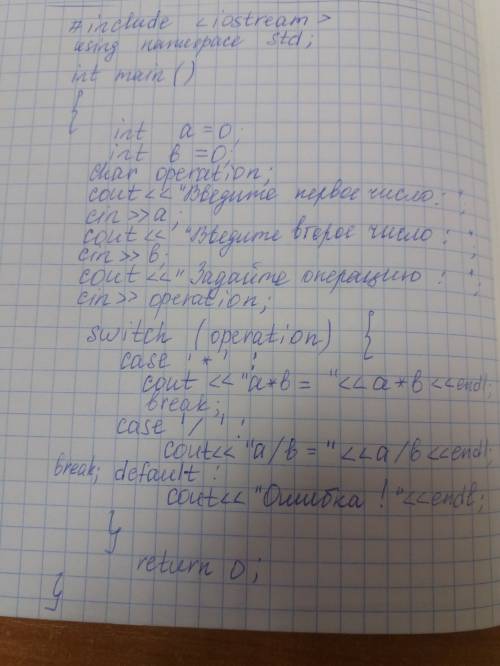 #include <iostream>
using namespace std;
int main()
{
int a=0;
int b=0;
char operation;
cout<<"Введите первое число: ";
cin>>a;
cout<<"Введите второе число: ";
cin>>b;
cout<<"Задайте операцию: ";
cin>>operation;
switch (operation) {
case '*' :
cout <<"a*b= "<<a*b<<endl;
break;
case '/' :
cout<<"a/b= "<<a/b<<endl;
break; default :
cout<<"Ошибка!"<<endl;
}
return 0;
}